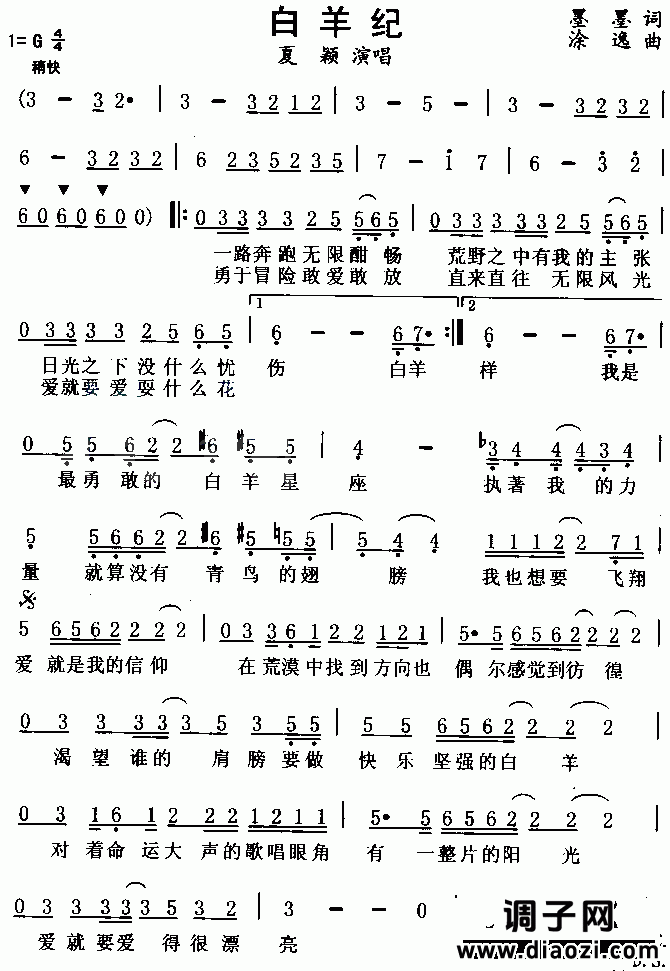 白羊纪
墨墨 词
1=G 4/4 夏颖 演唱 涂逸 曲
稍快
(3 - 3 2· | 3 - 3 2 1 2 | 3 - 5 - | 3 - 3 2 3 2 |
6 - 3 2 3 2 | 6 2 3 5 2 3 5 | 7 - 1 7 | 6 - 3 2 |
6 0 6 0 6 0 0) ‖: 0 3 3 3 3 2 5 5 6 5 | 0 3 3 3 3 3 2 5 5 6 5 |
一路奔跑无限酣畅 荒野之中有我的主张
勇于冒险敢爱敢放 直来直往 无限风光
1 2
0 3 3 3 3 2 5 6 5 | 6 - - 6 7· :‖ 6 - - 6 7· |
日光之下没什么忧 伤 白羊 样 我是
爱就要 爱耍什么花
0 5 5 6 2 2 #6 #5 5 | 4 - b3 4 4 3 4 |
最勇 敢的 白羊星 座 执著我 的力
5 5 6 6 2 2 #6 #5 5 5 | 5 4 4 1 1 1 2 7 1 |
量 就算没有 青鸟的翅 膀 我也想要 飞翔
5 6 5 6 2 2 2 | 0 3 3 6 1 2 2 1 2 1 | 5· 5 6 5 6 2 2 2 |
爱 就是我的信仰 在荒漠中找到方向也 偶尔感觉到彷徨
0 3 3 3 3 3 3 5 5 | 5 5 6 5 6 2 2 2 |
渴望谁的 肩膀要做 快乐 坚强的白 羊
0 3 1 6 1 2 2 2 1 2 1 1 | 5· 5 6 5 6 2 2 2 |
对着命运大 声的歌唱眼角 有 一整片的阳 光
0 3 3 3 3 3 5 3 2 | 3 - 0
爱就要爱 得很漂 亮
调子网
www.diaozi.com
D.S.